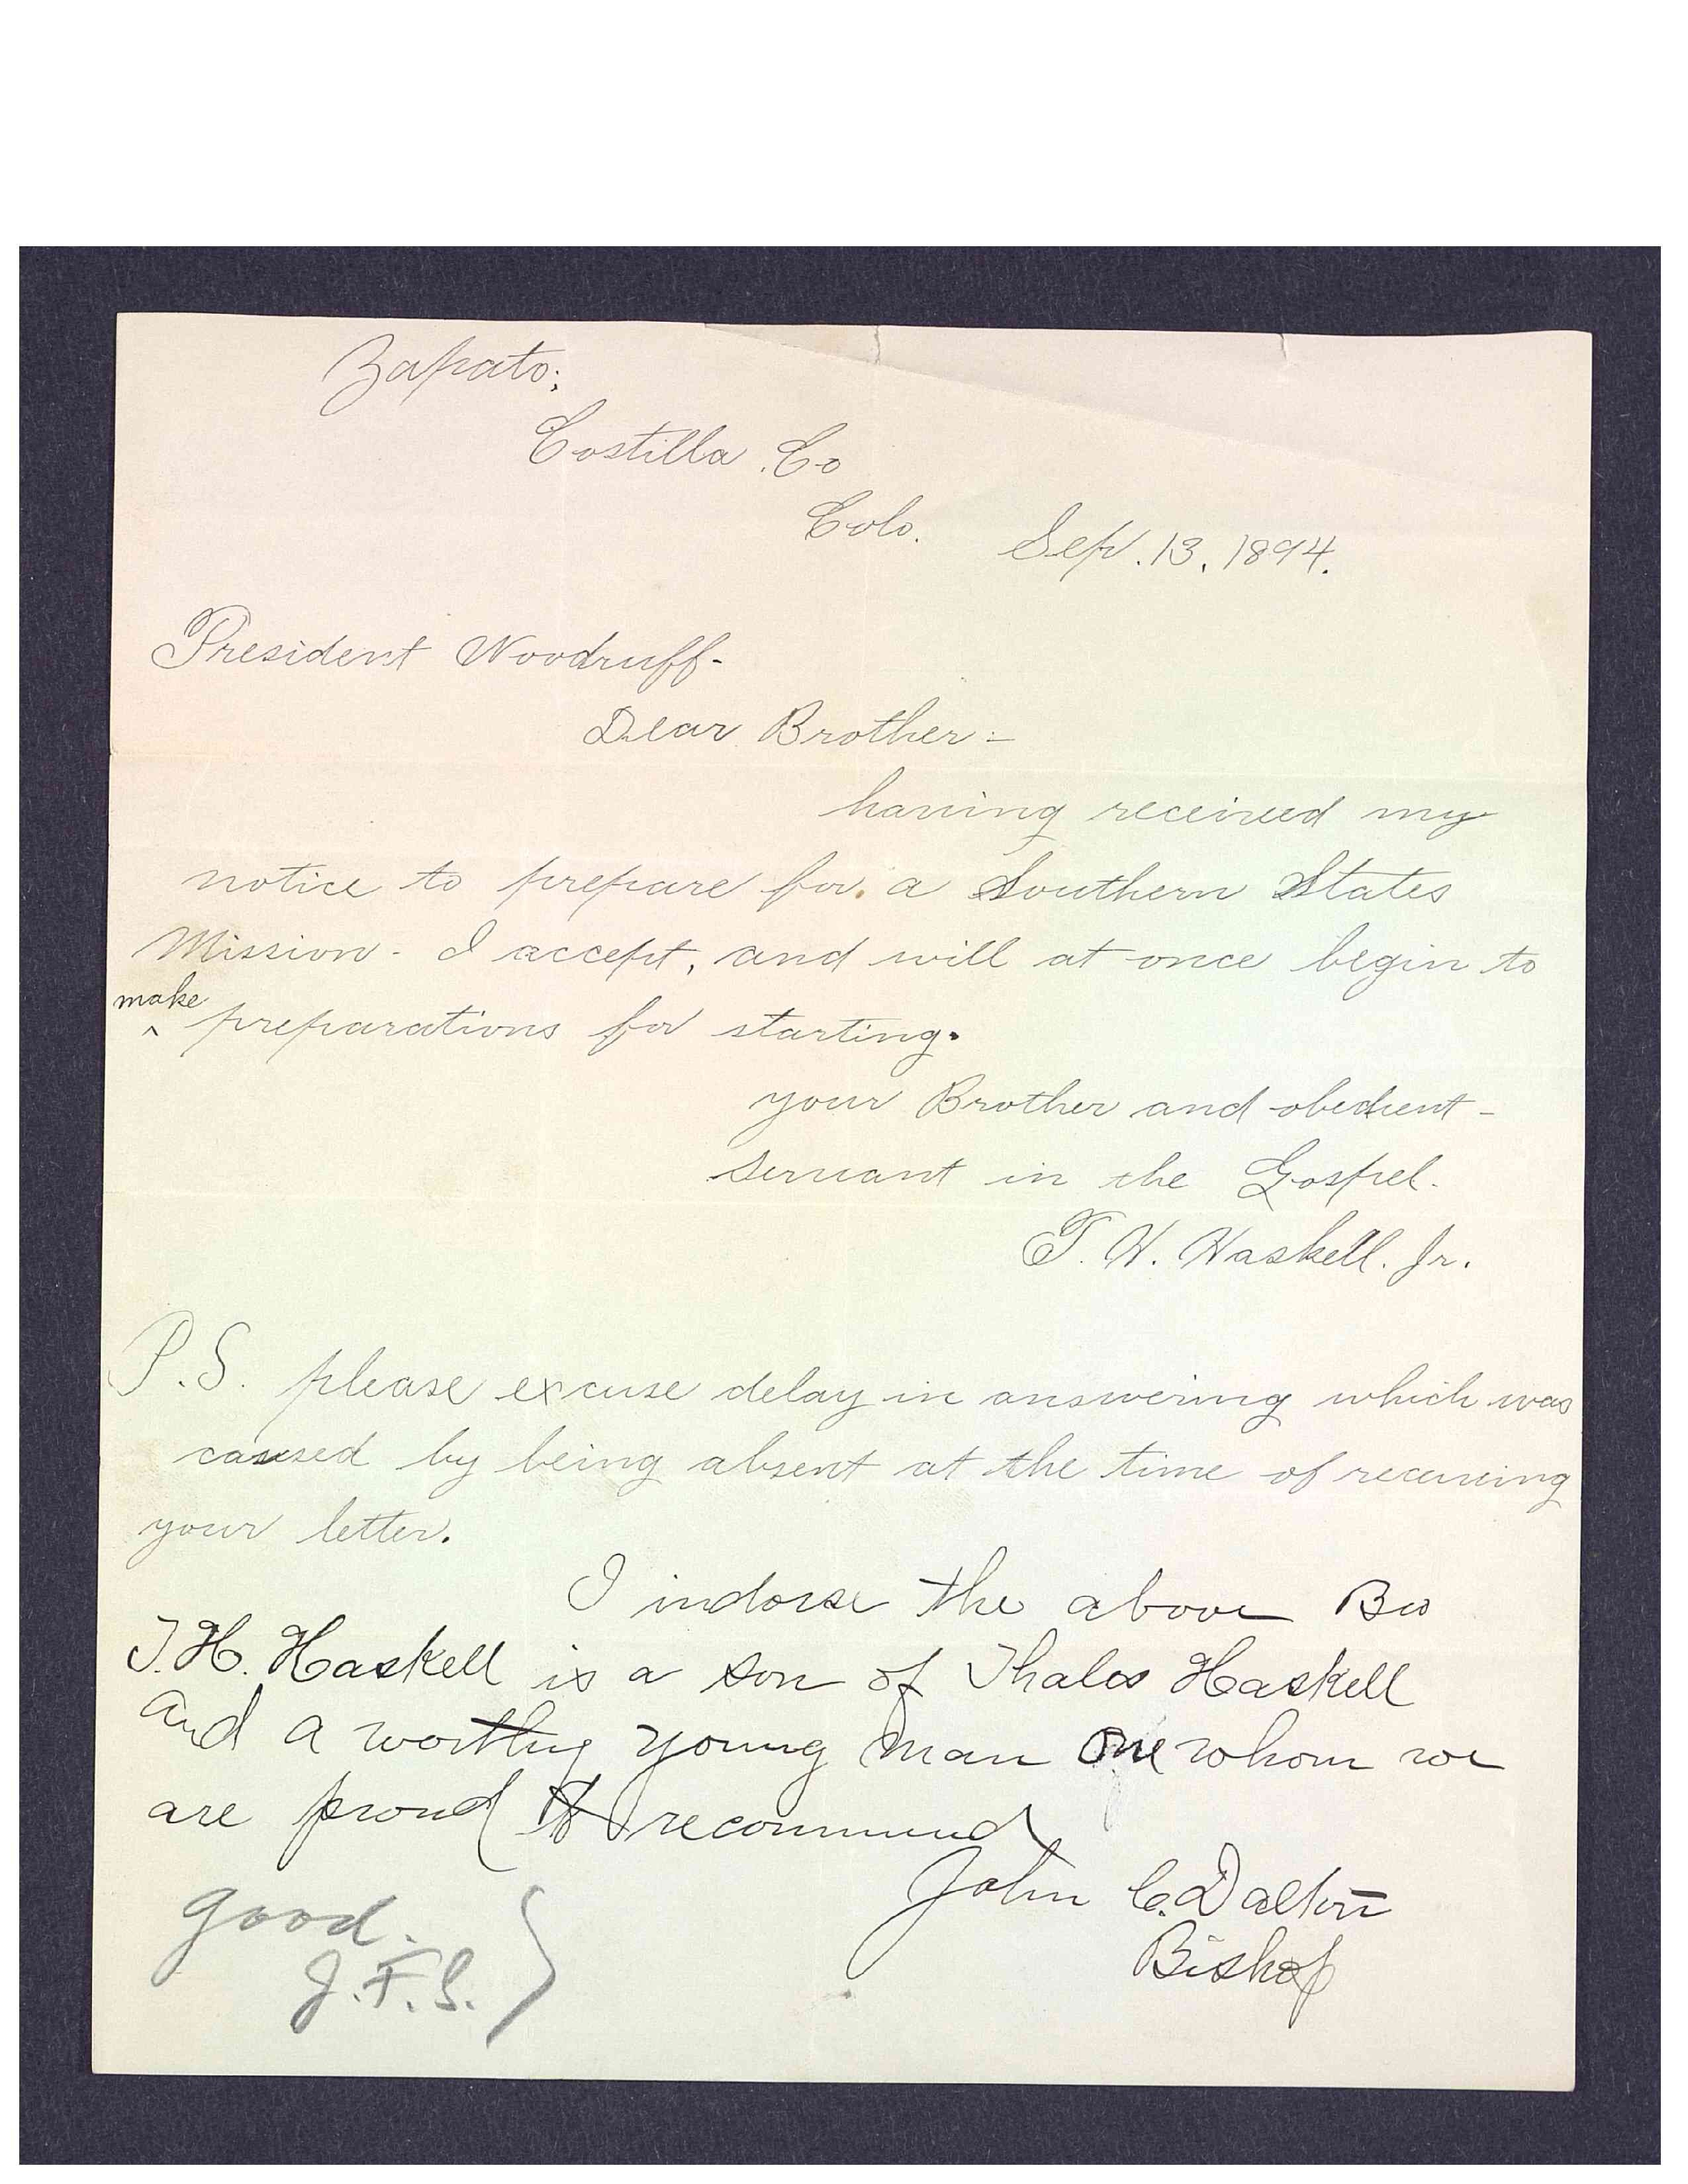 Zapato;
Costilla Co
Colo. Sep. 13, 1894.
President Woodruff-
Dear Brother-
having received my
notice to prepare for a Southern States
Mission- I accept, and will at once begin to
make
^ preparations for starting.
your Brother and obedient-
servant in the Gospel.
T. H. Haskell. Jr.
P.S. please excuse delay in answering which was
caused by being absent at the time of receiving
your letter.
I indorse the above Bro
T. H. Haskell is a son of Thales Haskell
and a worthy young man one whom we
are proud to recommend
John C. Dalton
Bishop
good.
J.F.S. }